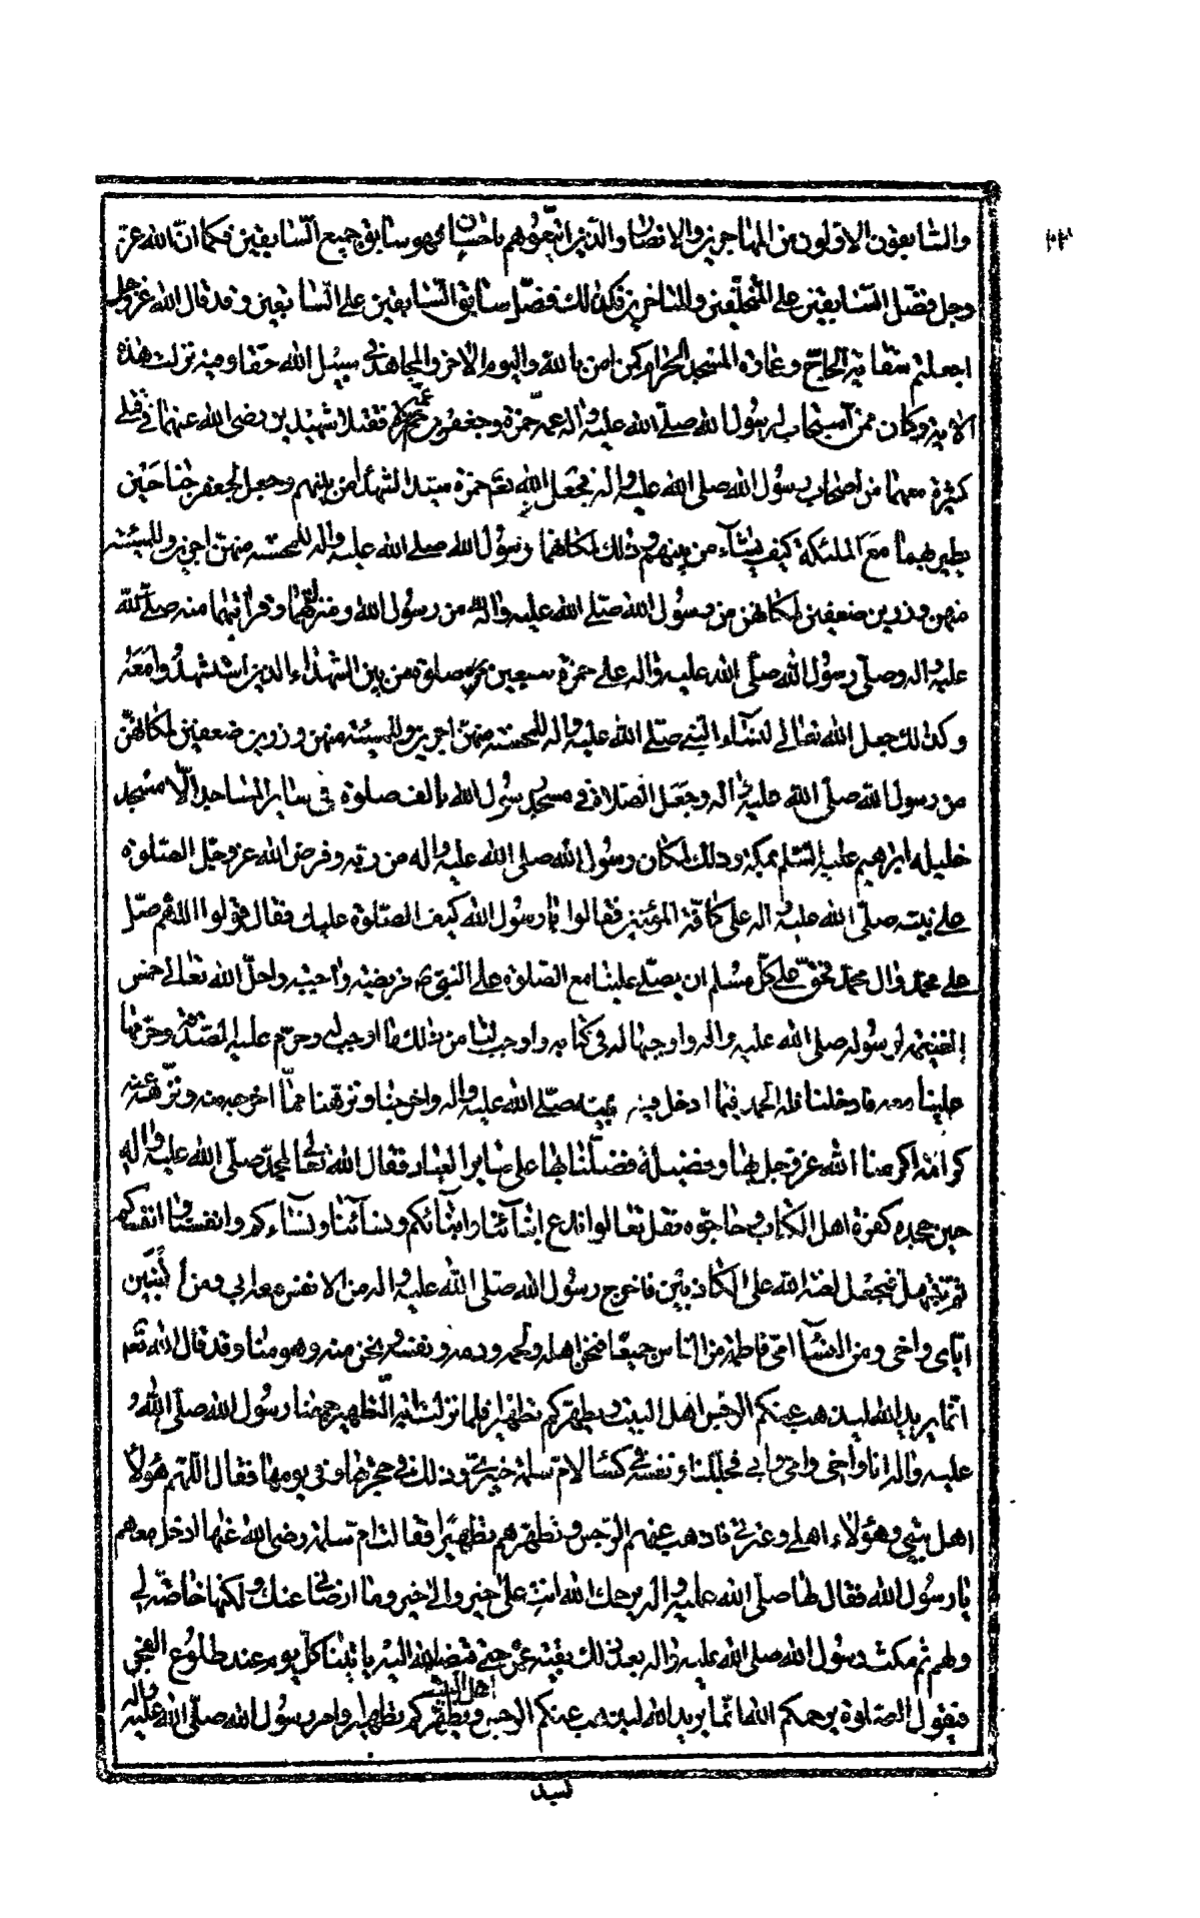 والسابقون الاولون من المهاجرين والانصار والذين اتبعوهم باحسان فهو سابق جميع السابقين فكما ان الله عز
وجل فضل السابقين على المتخلفين والمتاخرين فكذلك فضل سابق السابقين على السابقين وقد قال الله عز وجل
اجعلتم سقاية الحاج وعمارة المسجد الحرام كمن امن بالله واليوم الاخر والمجاهد في سبيل الله حقا وفيه نزلت هذه
الاية وكان ممن استجاب لرسول الله صلى الله عليه واله عمه حمزة وجعفر بن عمه فقتلا شهيدين رضى الله عنهما في قتلى
كثيرة معهما من اصحاب رسول الله صلى الله عليه واله فجعل الله تعم حمزة سيد الشهداء من بينهم وجعل لجعفر جناحين
يطير بهما مع الملئكة كيف يشآء من بينهم وذلك لمكانهما من رسول الله صلى الله عليه واله للمحسنة منهن اجرين وللمسيئة
منهن وزرين ضعفين لمكانهن من رسول الله صلى الله عليه واله من رسول الله ومنزلتهما وقرابتهما منه صلى الله
عليه واله وصلى رسول الله صلى الله عليه واله على حمزة سبعين صلوة من بين الشهداء الذين استشهدوا معه
وكذلك جعل الله تعالى لنسآء النبي صلى الله عليه واله للمحسنة منهن اجرين وللمسيئة منهن وزرين ضعفين لمكانهن
من رسول الله صلى الله عليه واله وجعل الصلاة في مسجد رسول الله بالف صلوة في ساير المساجد الا مسجد
خليله ابرهيم عليه السلم بمكة وذلك لمكان رسول الله صلى الله عليه واله من ربه وفرض الله عز وجل الصلوة
على نبيه صلى الله عليه واله على كافة المؤمنين فقالوا يا رسول الله كيف الصلوة عليك فقال قولوا اللهم صل
على محمد وال محمد فحق على كل مسلم ان يصلى علينا مع الصلوة على النبي فريضة واجبة واحل الله تعالى خمس
الغنيمة لرسوله صلى الله عليه واله واوجبها له في كتابه واوجب لنا من ذلك ما اوجب له وحرم عليه الصدقة وحرمها
علينا معه فادخلنا فله الحمد فيما ادخل فيه نبيه صلى الله عليه واله واخرجنا ونزهنا مما اخرجه منه ونزهه عنه
كرامة اكرمنا الله عز وجل بها وفضيلة فضلنا بها على ساير العباد فقال الله تعالى لمحمد صلى الله عليه واله
حين جحده كفرة اهل الكتاب وحاجوه فقل تعالوا ندع ابنآئنا وابنآئكم ونسآئنا ونسآءكم وانفسنا وانفسكم
ثم نبتهل فنجعل لعنة الله على الكاذبين فاخرج رسول الله صلى الله عليه واله من الانفس معه ابي ومن البنين
اياى واخى ومن النسآء امى فاطمة من الناس جميعا فنحن اهله ولحمه ودمه ونفسه ونحن منه وهو منا وقد قال الله تعم
انما يريد الله ليذهب عنكم الرجس اهل البيت ويطهركم تطهيرا فلما نزلت اية التطهير جمعنا رسول الله صلى الله
عليه واله انا واخى وامى وابى فجللنا ونفسه في كسآء لام سلمة خيبرى وذلك في حجرتها وفي يومها فقال اللهم هؤلاء
اهل بيتى وهؤلاء اهلى وعترتى فاذهب عنهم الرجس وتطهرهم تطهيرا فقالت ام سلمة رضى الله عنها ادخل معهم
يا رسول الله فقال لها صلى الله عليه واله يرحمك الله انت على خير والى خير وما ارضانى عنك ولكنها خاصة لى
ولهم ثم مكث رسول الله صلى الله عليه واله بعد ذلك بقية عمره حتى قبضه الله اليه ياتينا كل يوم عند طلوع الفجر
فيقول الصلوة يرحمكم الله انما يريد الله ليذهب عنكم الرجس اهل البيت ويطهركم تطهيرا وامر رسول الله صلى الله عليه واله
بسد